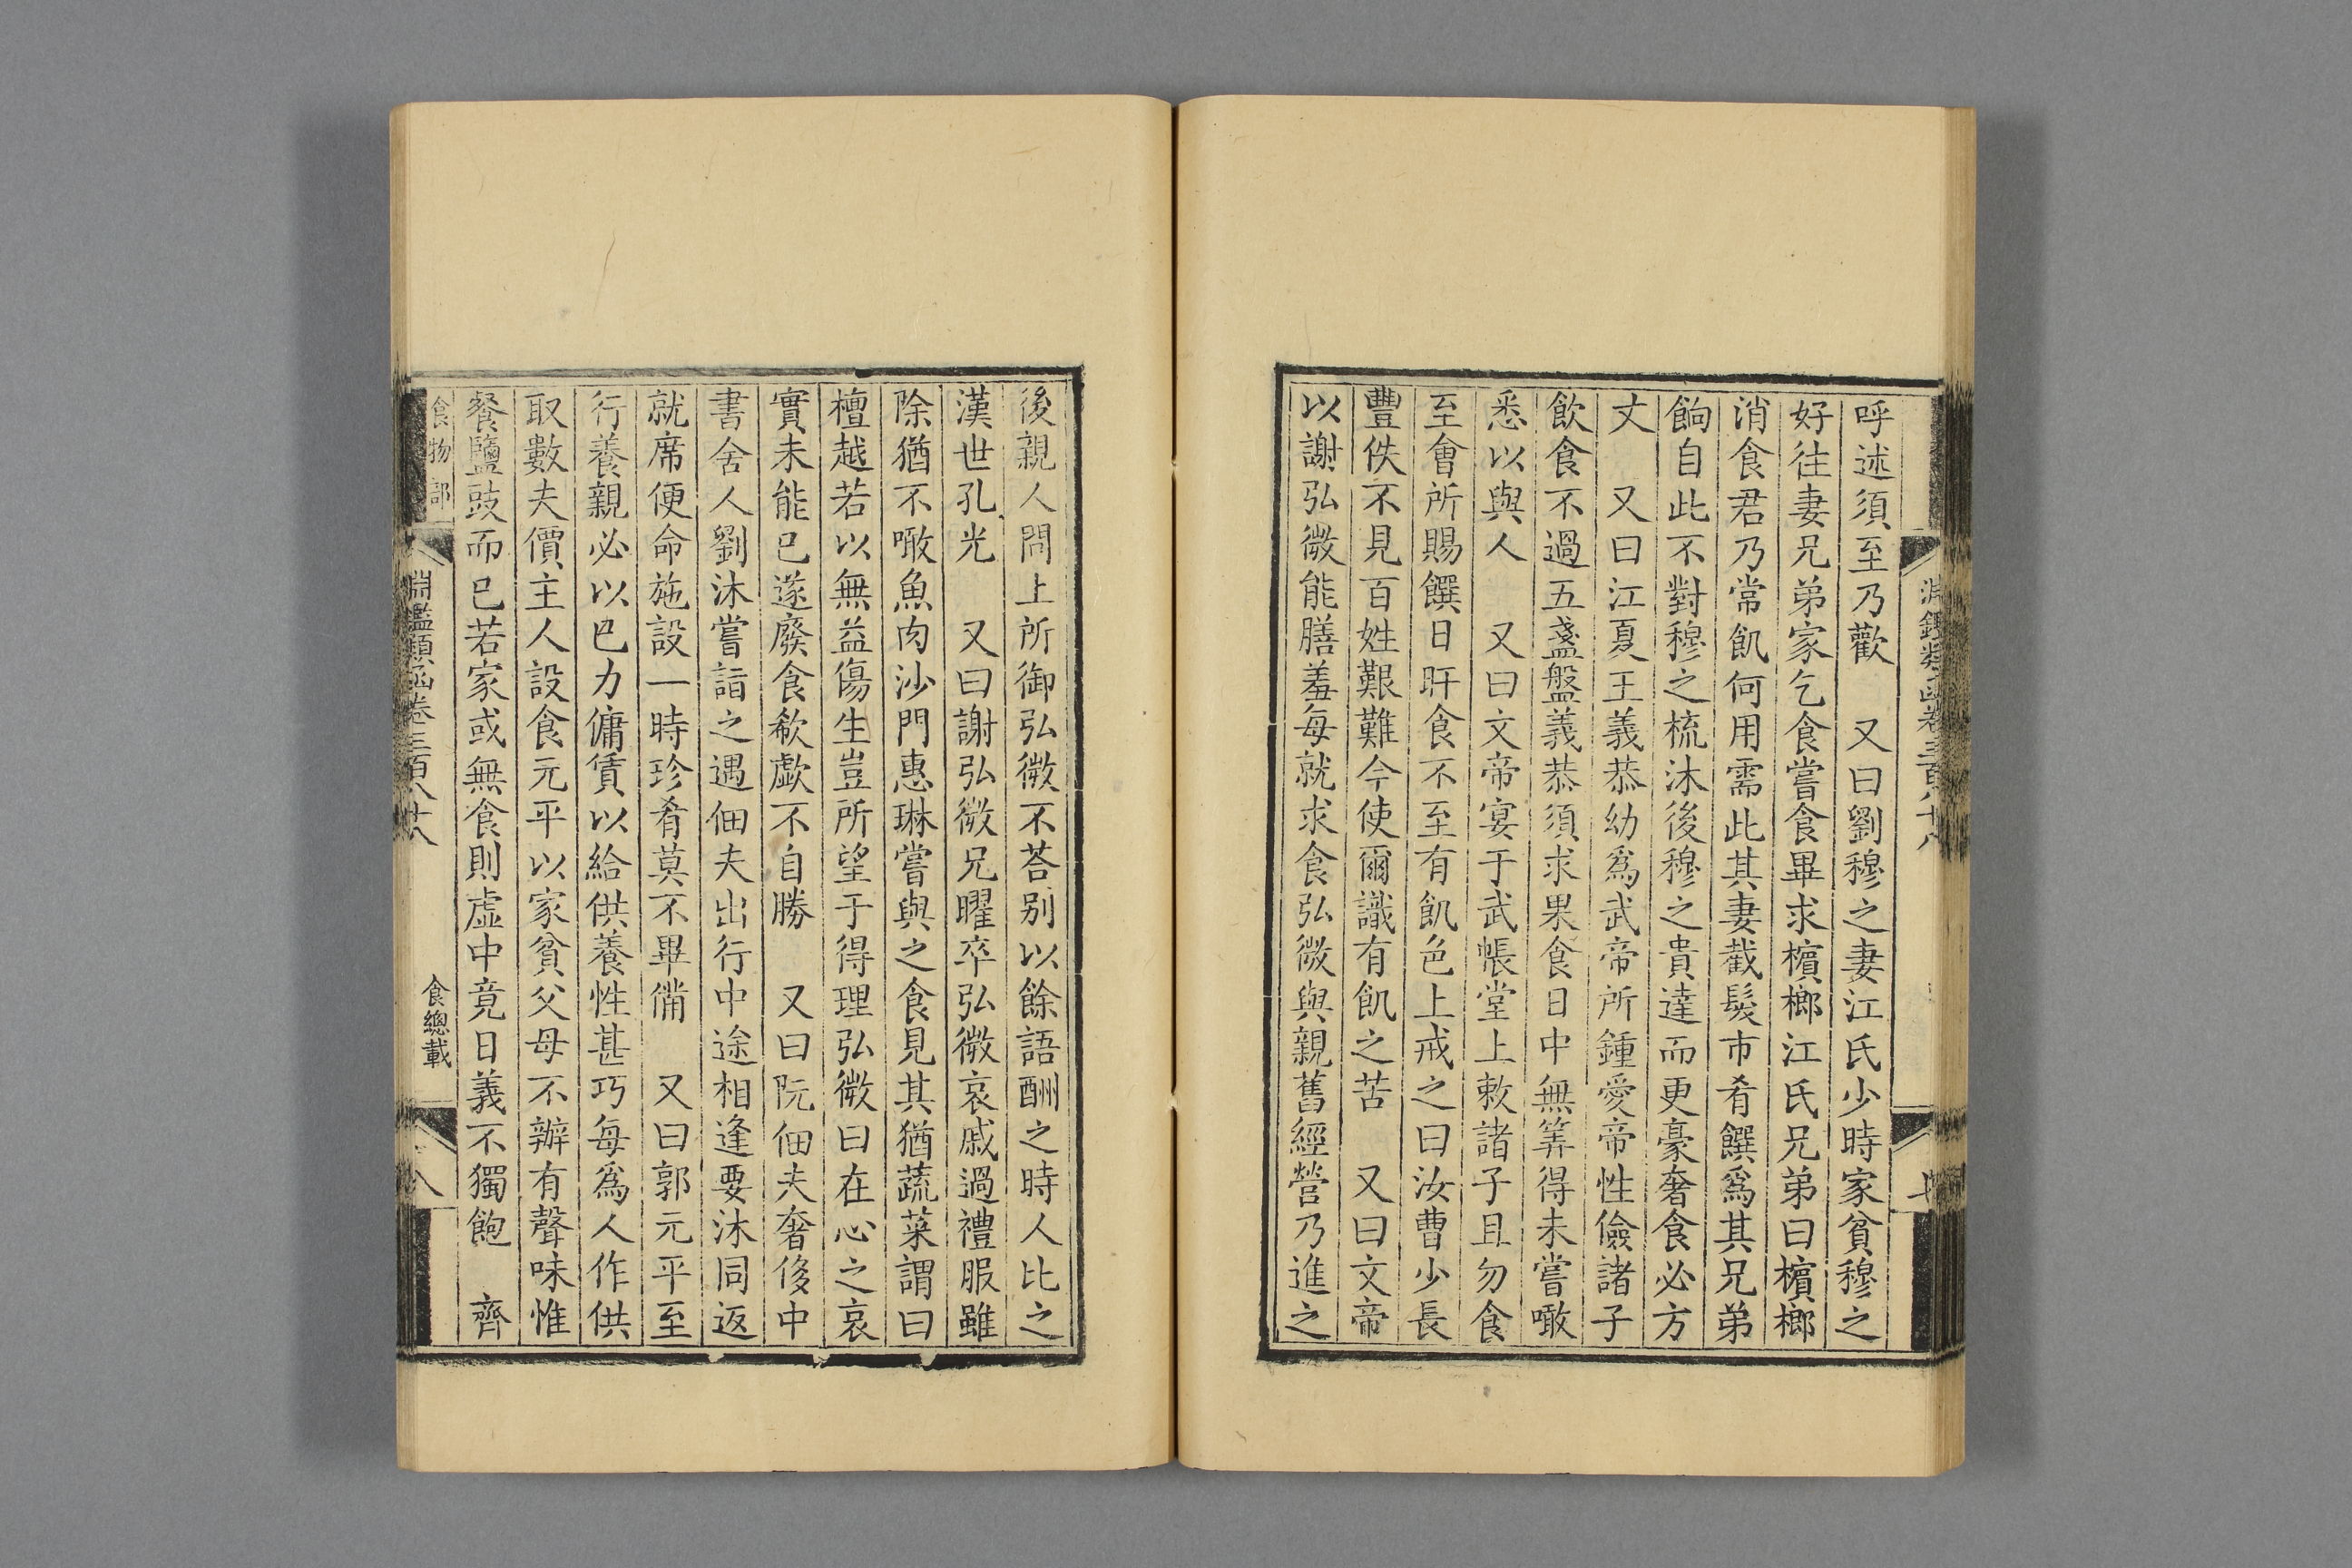 呼述須至乃歡　又曰劉穆之妻江氏少時家貧穆之
好往妻兄弟家乞食嘗食畢求檳榔江氏兄弟曰檳榔
消食君乃常飢何用需此其妻截髮市肴饌爲其兄弟
餉自此不對穆之梳沐後穆之貴達而更豪奢食必方
丈　又曰江夏王義恭幼爲武帝所鍾愛帝性儉諸子
飲食不過五盞盤義恭須求果食日中無筭得未嘗噉
悉以與人　又曰文帝宴于武帳堂上敕諸子且勿食
至會所賜饌日旰食不至有飢色上戒之曰汝曹少長
豐佚不見百姓艱難今使爾識有飢之苦　又曰文帝
以謝弘微能膳羞每就求食弘微與親舊經營乃進之
後親人問上所御弘微不荅别以餘語酬之時人比之
漢世孔光　又曰謝弘微兄曜卒弘微哀戚過禮服雖
除猶不噉魚肉沙門惠琳嘗與之食見其猶蔬菜謂曰
檀越若以無益傷生豈所望于得理弘微曰在心之哀
實未能已遂廢食欷歔不自勝　又曰阮佃夫奢侈中
書舍人劉沐嘗詣之遇佃夫出行中途相逢要沐同返
就席便命施設一時珍肴莫不畢備　又曰郭元平至
行養親必以已力傭賃以給供養性甚巧每爲人作供
取數夫價主人設食元平以家貧父母不辦有聲味惟
餐鹽豉而已若家或無食則虛中竟日義不獨飽　齊
食物部
淵鑑類函卷三百八十八
食總載
八